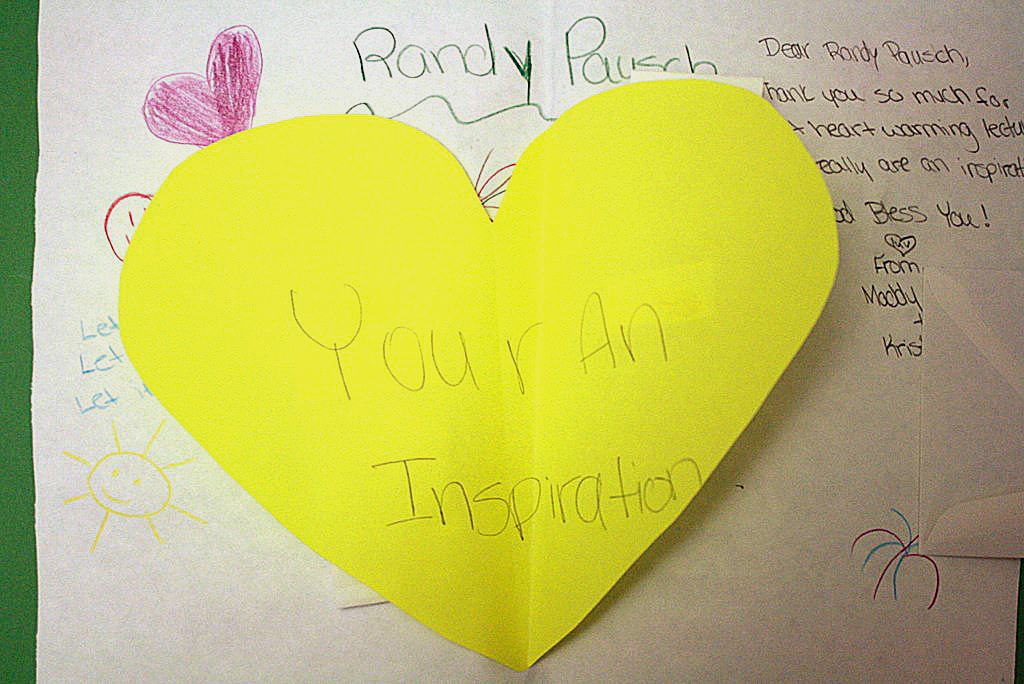 Randy Pausch
Dear Randy Pausch,
Thank you so much for
heart warming
really are an
Bless You!
From,
Maddy
+
Let
Let
Let
Your An
Inspiration